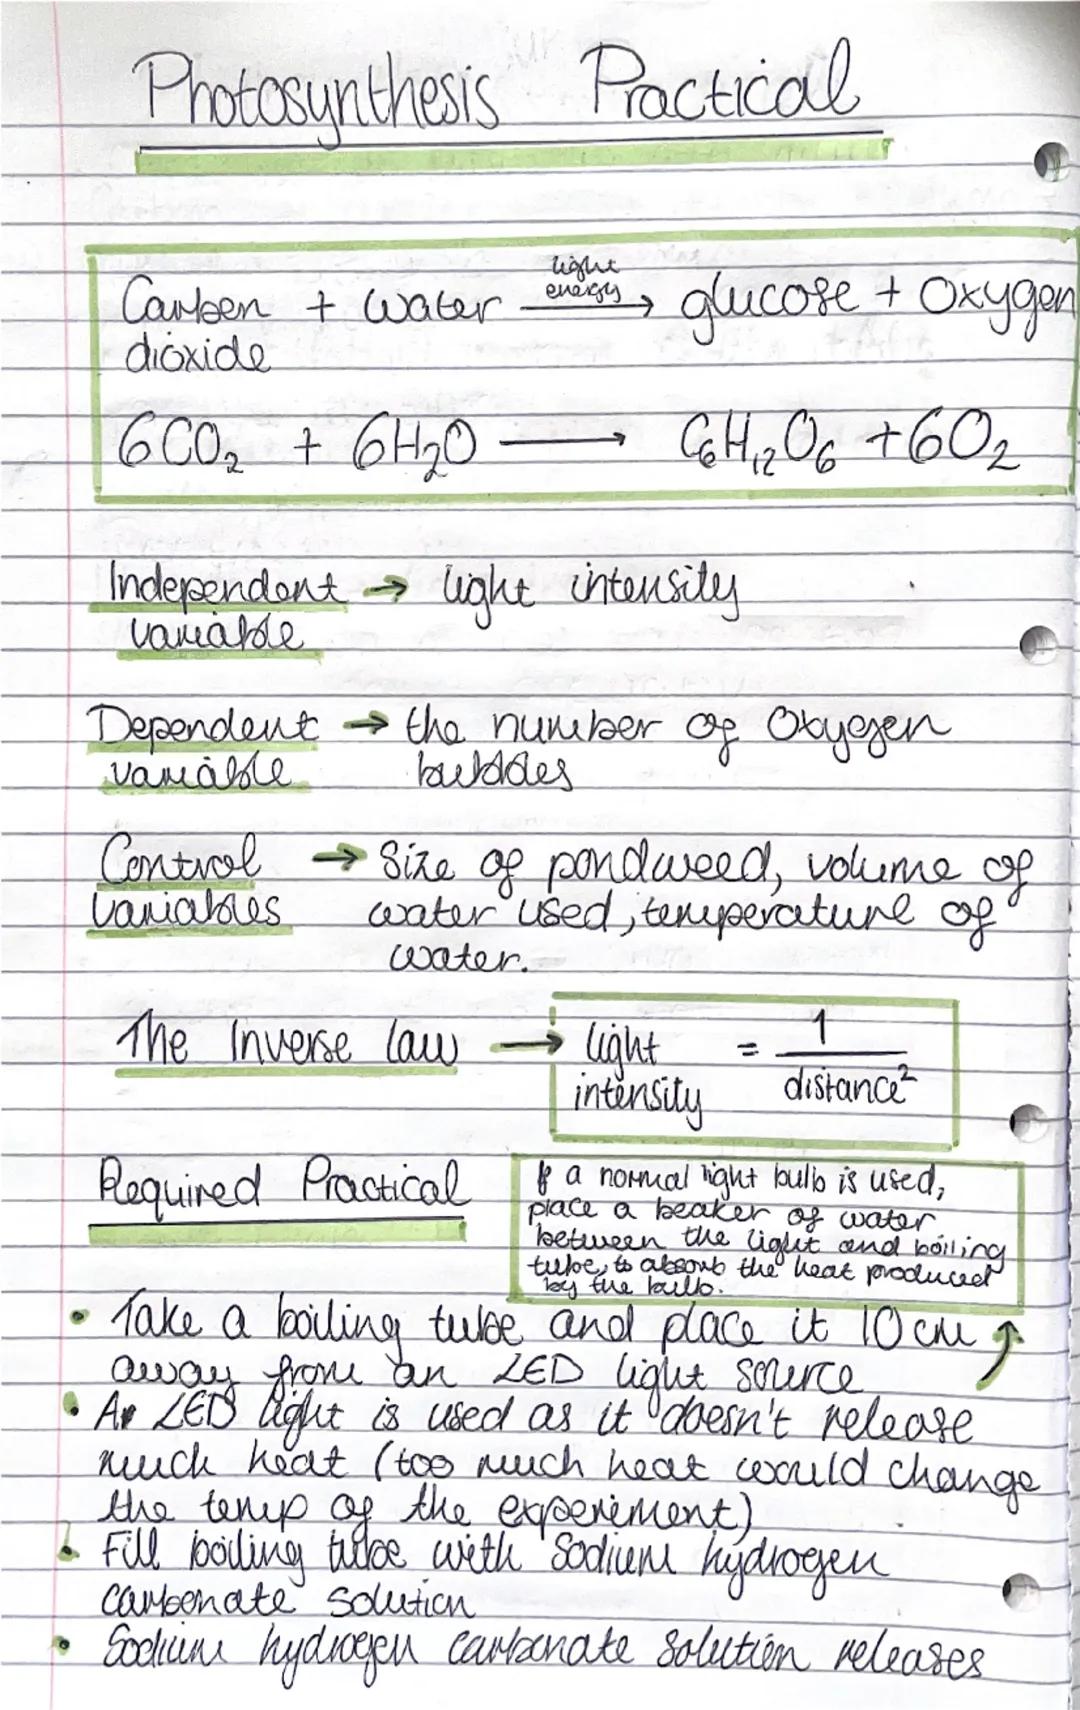 Photosynthesis Practical
light
energy
Carbon + Water → glucose + Oxygen
dioxide
6CO₂ + 6H₂O → C₆H₁₂O₆ + 6O₂
Independent → light intensity
variable
Dependent → the number of Oxyegen
variable bubbles
Control → Size of pondweed, volume of
Variables water used, temperature of
water.
The Inverse law → light = 1
intensity distance²
Required Practical
If a normal light bulb is used,
place a beaker of water
between the light and boiling
tube, to absorb the heat produced
by the bulb.
• Take a boiling tube and place it 10cm
away from an LED light source
• An LED light is used as it doesn't release
much heat (too much heat would change
the temp of the experiment)
• Fill boiling tube with Sodium hydrogen
carbonate solution
• Sodium hydrogen carbonate solution releases